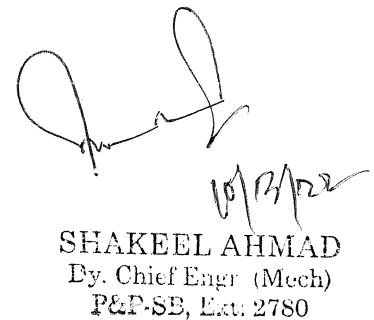 SHAKEEL AHMAD
Dy. Chief Engr (Mech)
P&P-SB, Ext: 2780